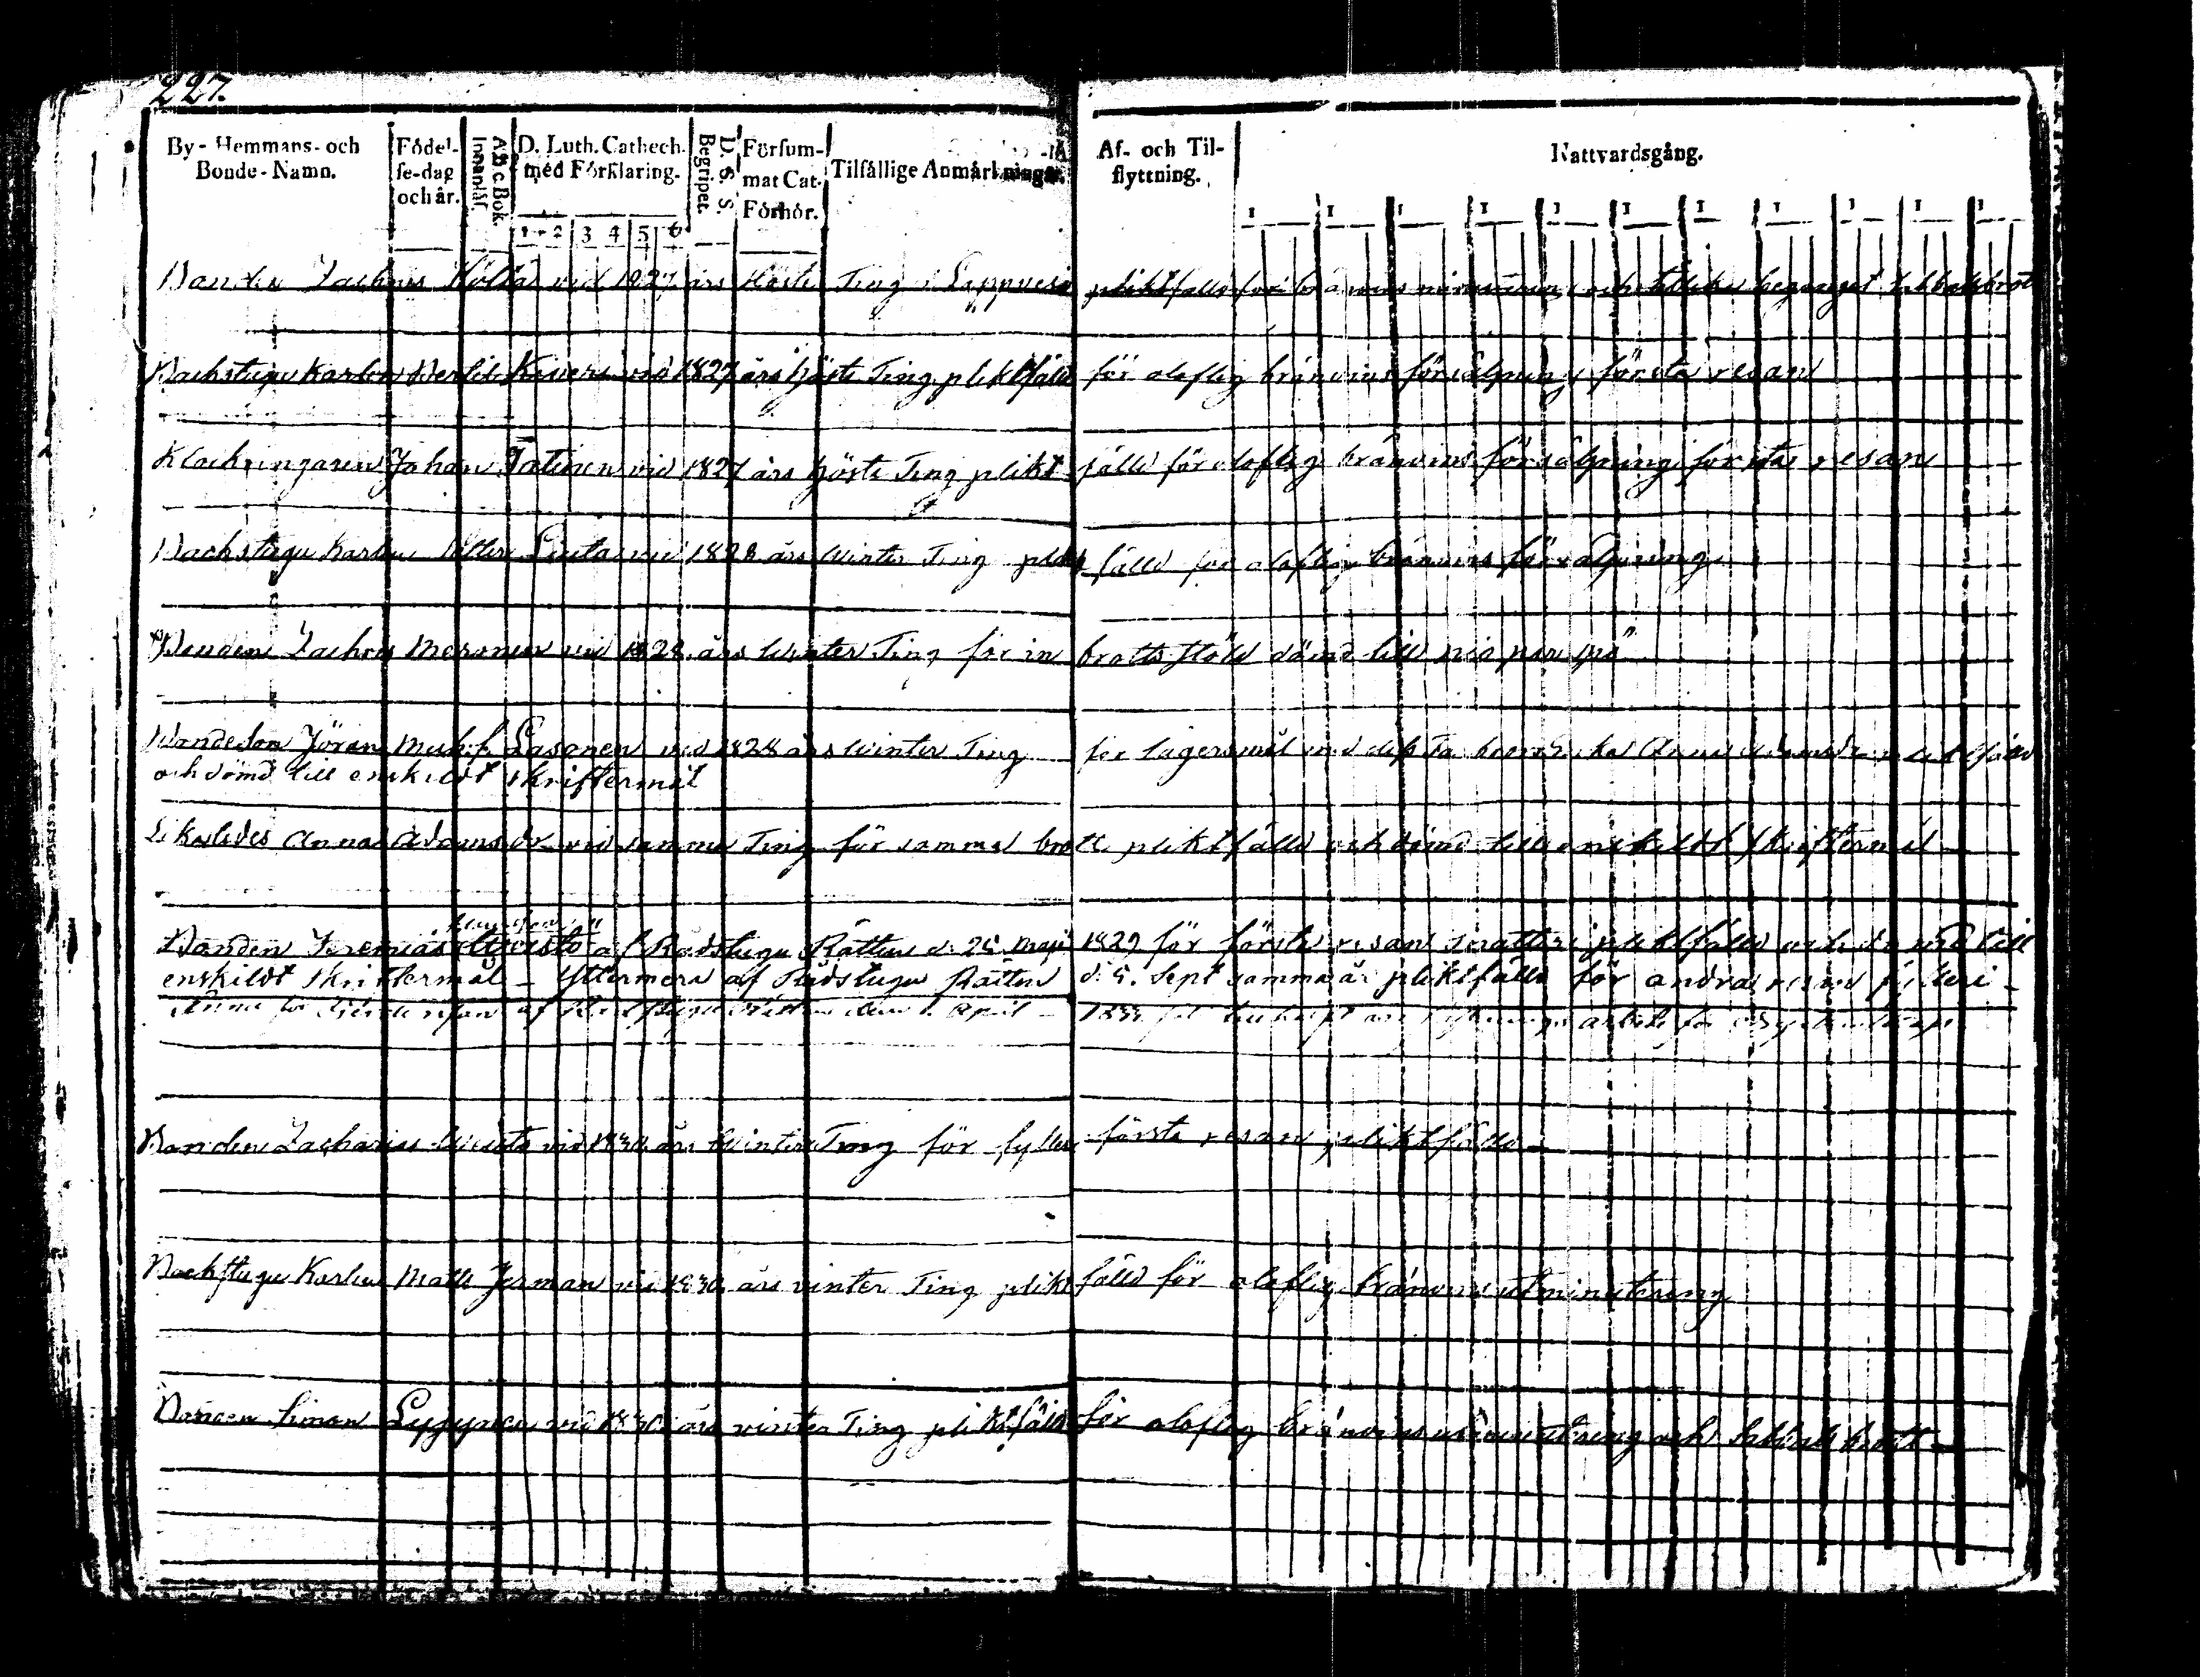 227.
By- Hemmans- och Bonde-Namn.
Födel-se-dag och år.
Abc Bok. Innanläs.
D. Luth. Cathech. med Förklaring.
1 2 3 4 5 6
D. S. S. Begripet.
Försum-mat Cat. Förhör.
Tilfällige Anmärkningar.
Af- och Til-flyttning.
Nattvardsgång.
Bonden Zachris vid 1827 års Höste Ting i pliktfälld för bränvins och begånget sabbatsbrott
Backstugu Karlen vid 1827 års Höste Ting pliktfälld för oloflig bränvins försälgning första resan
Klockringaren Johan Tatinen vid 1827 års Höste Ting plikt fälld för oloflig bränvins försälgning första resan
Backstugu Karlen Petter vid 1828 års Winter Ting plikt fälld för oloflig bränvins försälgning
Bonden Zachris vid 1828 års Winter Ting för in brotts stöld dömd till nio par spö
Bondeson Jöran Lasanen vid 1828 års Winter Ting för lägersmål med Anna Adamsdr pliktfälld
och dömd till enskildt skriftermål
Likaledes Anna Adamsdr vid samma Ting för samma brott pliktfälld och dömd till enskildt skriftermål
Bonden Jeremias af Rådstugu Rätten d. Maji 1829 för första resan snatteri pliktfälld och dömd till
enskildt skriftermål - Yttermera af Rådstugu Rätten d. 5. Sept samma år pliktfälld för andra resan fylleri -
af Rådstugu Rätten den April - arbete för
Bonden Zacharias vid 1830 års Winter Ting för fylleri första resan pliktfälld -
Backstugu Karlen Matts Jerman vid 1830 års vinter Ting plikt fälld för oloflig bränvins utminutering
Bonden Simon Lyyynen vid 1830 års vinter Ting pliktfälld för oloflig bränvins utminutering och sabbats brott -